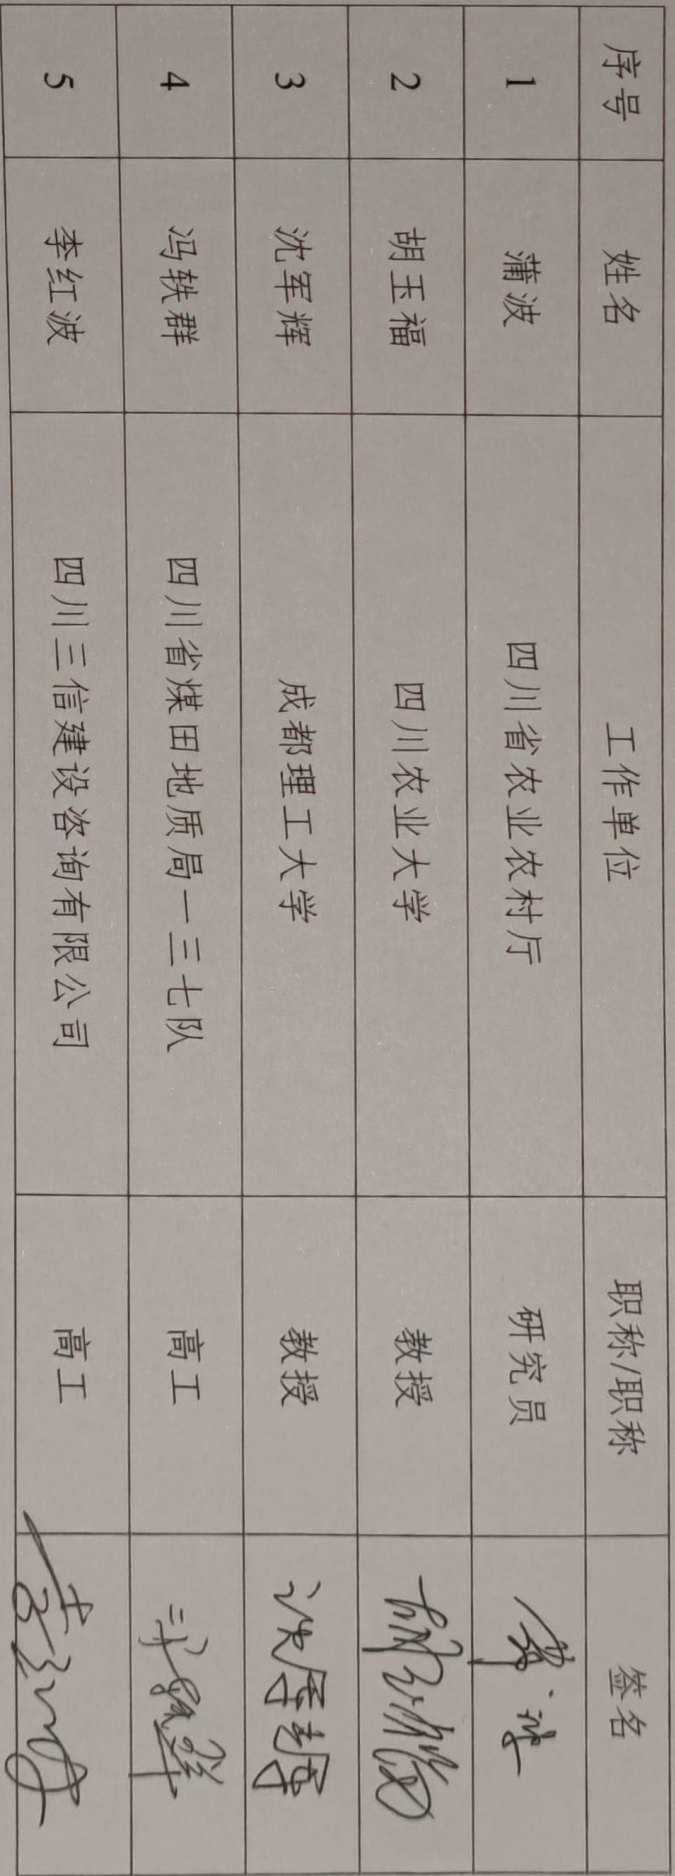 序号 姓名 工作单位 职称/职称 签名
1 蒲波 四川省农业农村厅 研究员 蒲波
2 胡玉福 四川农业大学 教授 胡玉福
3 沈军辉 成都理工大学 教授 沈军辉
4 冯轶群 四川省煤田地质局一三七队 高工 冯轶群
5 李红波 四川三信建设咨询有限公司 高工 李红波